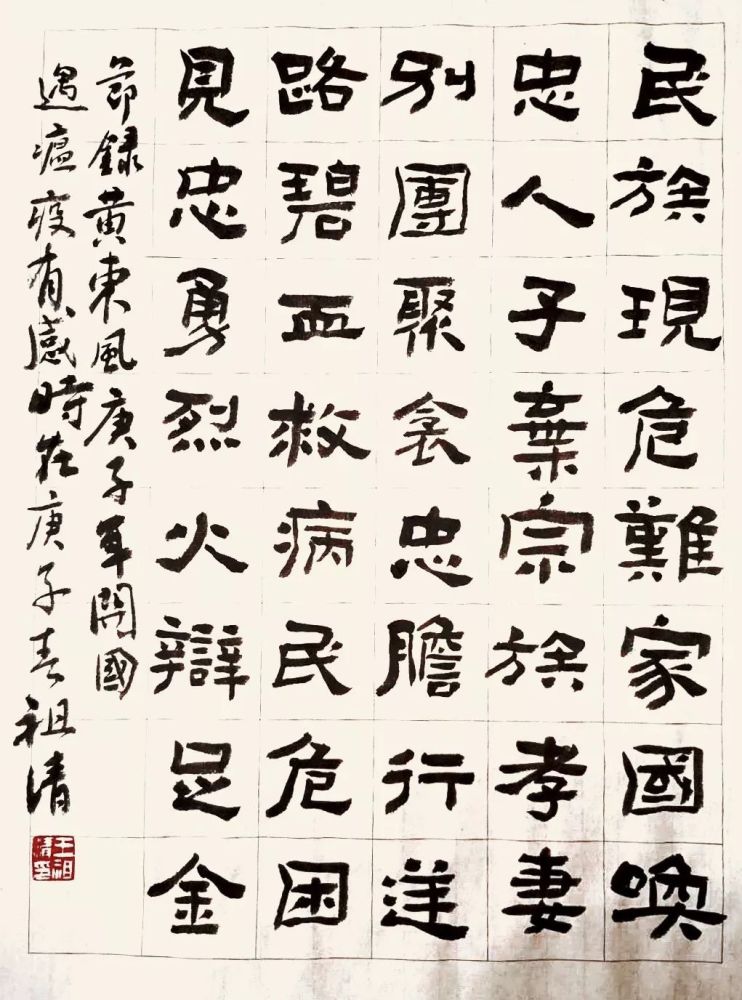 民族現危難家國喚
忠人子棄宗族孝妻
別團聚衾忠膽行逆
路碧血救病民危困
見忠勇烈火辯足金
節録黄東風庚子年開國
遇瘟疫有感時在庚子春祖清
王祖清印